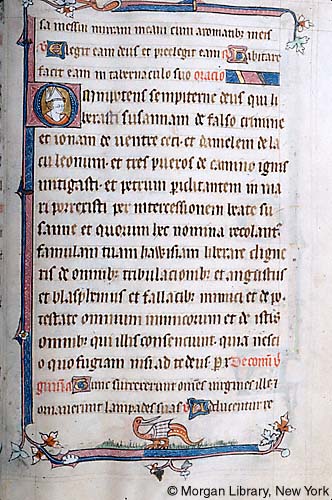 sa messui mirram meam cum aromatibus meis
Elegit eam deus et preelegit eam Habitare
facit eam in tabernaculo suo oracio
Omnipotens sempiterne deus qui li
berasti susannam de falso crimine
et ionam de ventre ceti et danielem de la
cu leonum et tres pueros de camino ignis
et petrum in ma
ri porrexisti per intercessionem beate su
sanne et quorum hec nomina recolunt
famulam tuam hawisiam liberare digne
ris de omnibus tribulacionibus et angustiis
et blasphemiis et fallaciis inimici et de po
testate omnium inimicorum et de istis
omnibus qui illis consenciunt quia nescio
quo fugiam nisi ad te deus
Tunc surrexerunt omnes virgines ille
ornaverunt lampades suas Adducentur re
© Morgan Library, New York